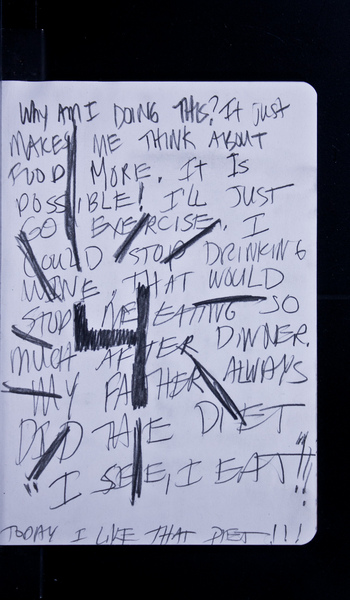 WHY AM I DOING THIS? IT JUST
MAKES ME THINK ABOUT
FOOD MORE. IT IS
POSSIBLE! I'LL JUST
GO EXERCISE. I
COULD STOP DRINKING
WINE, THAT WOULD
STOP ME EATING SO
MUCH AFTER DINNER.
MY FATHER ALWAYS
DID THE DIET
"I SEE, I EAT"!!
TODAY I LIKE THAT DIET!!!
4